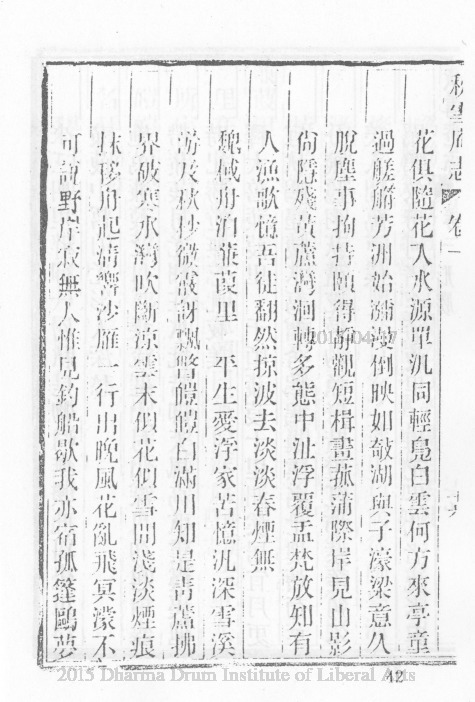 秋雪庵志 卷一
花俱隨花入水源單汎同輕鳧白雲何方來亭童
過艖艒芳洲始瀰漫倒映如欹湖與子濠梁意久
脫塵事拘持頤得靜觀短楫畫菰蒲際岸見山影
尚隱殘黃蘆灣洄轉多態中沚浮覆盂梵放知有
人漁歌憶吾徒翻然掠波去淡淡春煙無
魏棫舟泊蒹葭里 平生愛浮家苦憶汎深雪溪
游及秋杪微霰訝飄瞥皚皚白滿川知是青蘆拂
界破寒水灣吹斷涼雲末似花似雪間淺淡煙痕
抹移舟起清響沙雁一行出晚風花亂飛冥濛不
可說野岸寂無人惟見釣船歇我亦宿孤篷鷗夢
十六
42
2015 Dharma Drum Institute of Liberal Arts